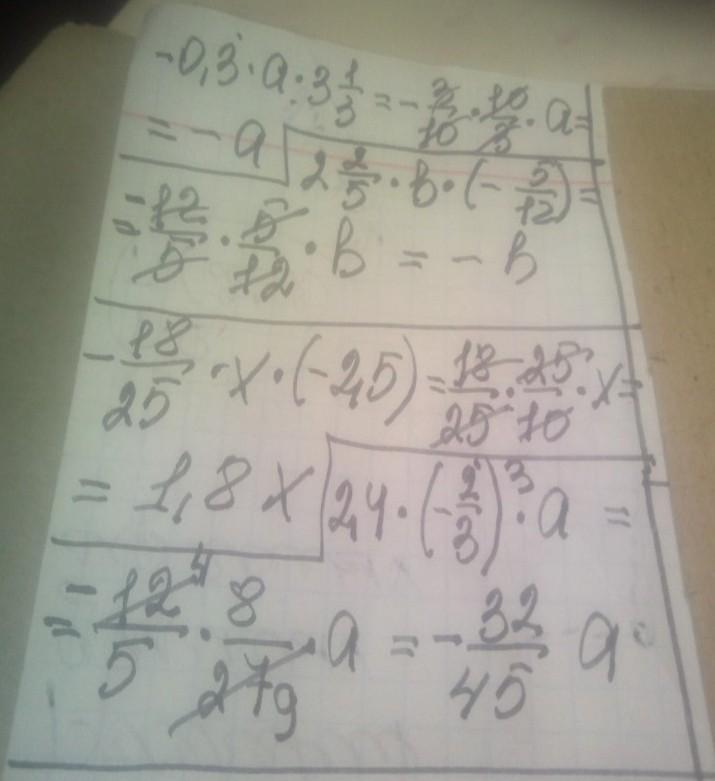 -0,3·a·3 1/3 = -3/10·10/3·a=
= -a
2 2/5·b·(-5/12)=
= -12/5·5/12·b = -b
-18/25·x·(-2,5)=18/25·25/10·x=
= 1,8x
2,4·(-2/3)³·a =
= -12 4/5·8/27 9·a = -32/45 a